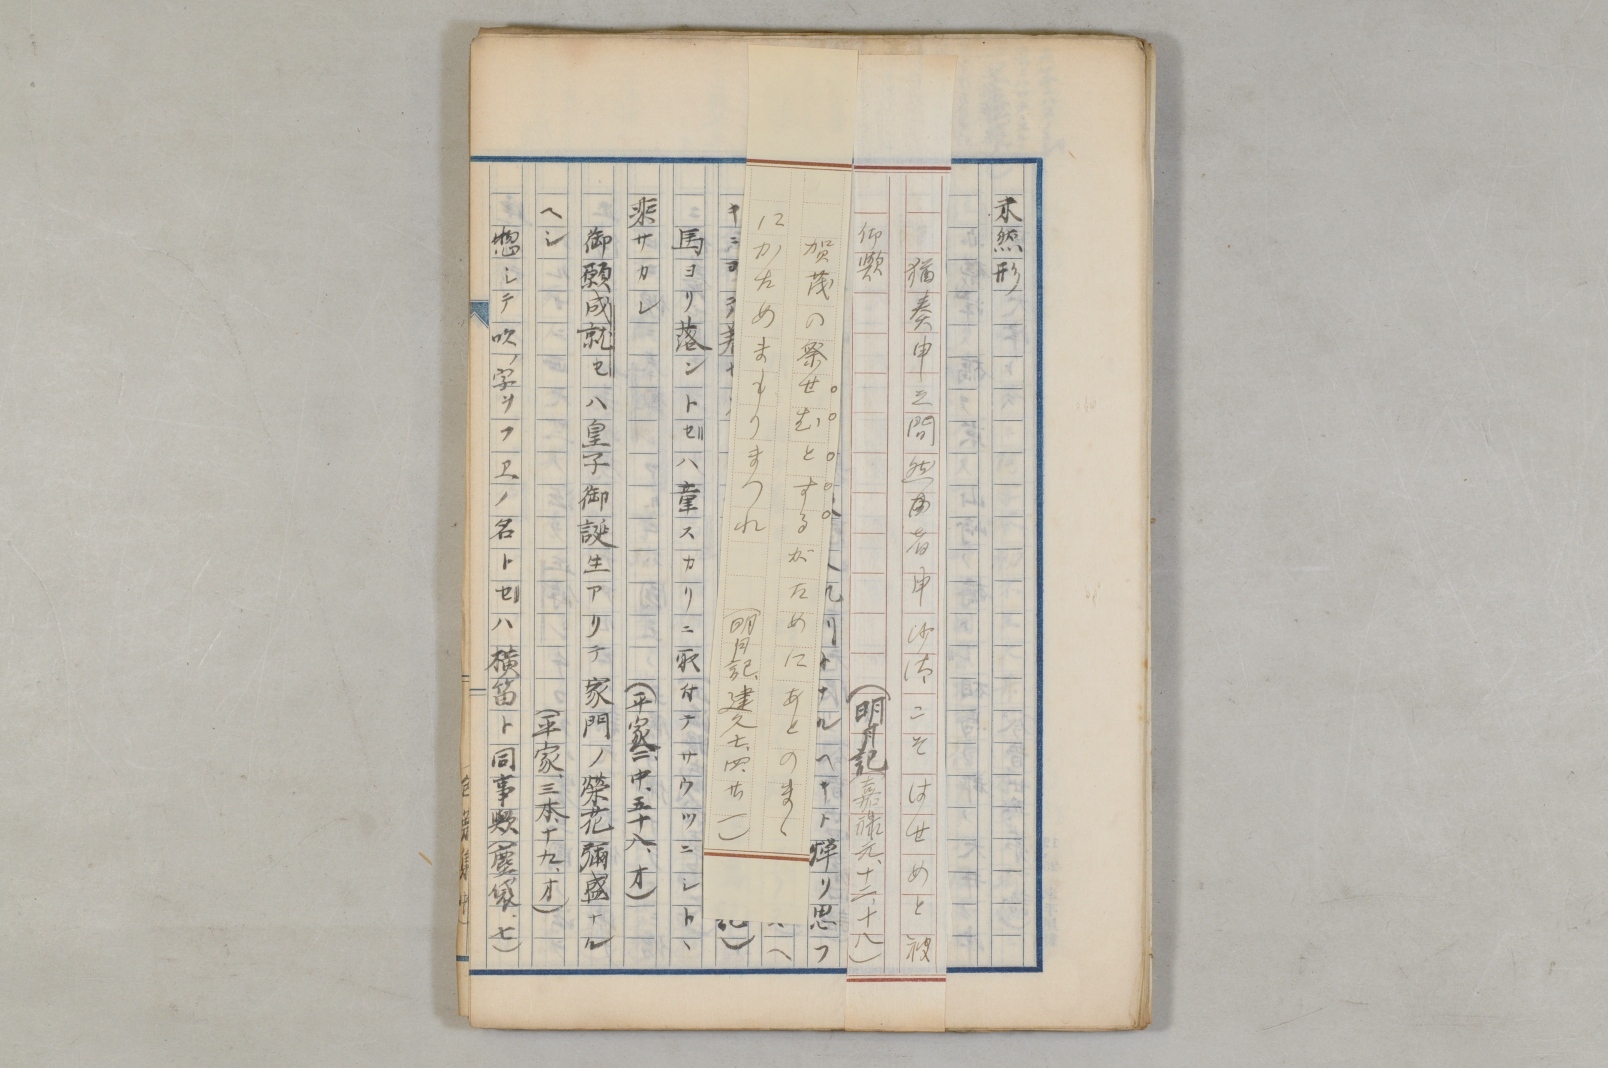 未然形
猶奏申之間然而者申沙汰こそはせめと被
仰歟
(明月記嘉禄元、十二、十八)
賀茂の祭せむとするがためにあとのまゝ
にかためまもりまつれ
(明月記、建久七、四、廿一)
憚リ思フ
馬ヨリ落ントセハ童スカリニ取付テサウツニシト、
楽サカレ
(平家二中、五十八、オ)
御願成就セハ皇子御誕生アリテ家門ノ榮花彌盛ナル
ヘシ
(平家、三本、十九、オ)
惣シテ吹ノ字ヲフエノ名トセハ横笛ト同事歟(塵袋、七)